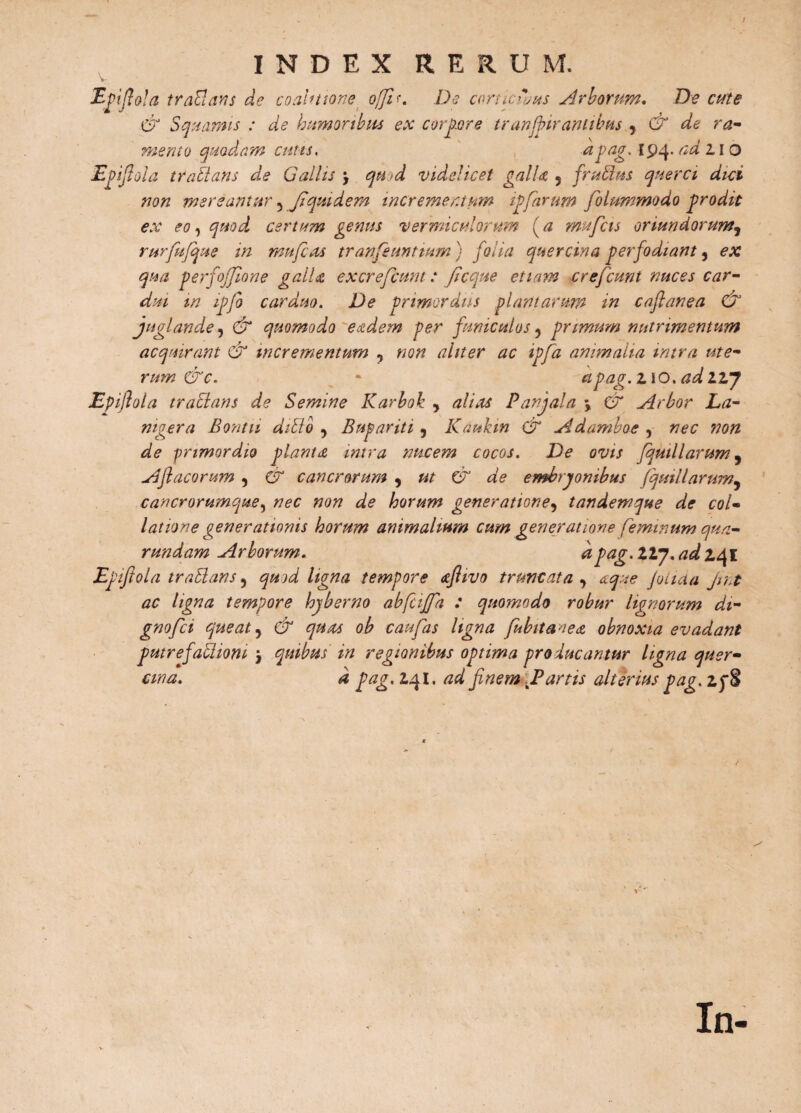 INDEX RERUM.
Epiſtola tractans de coalitione oſſis. De corticibus Arborum. De cute
& Squamis : de humoribus ex corpore tranſpirantibus , & de ra-
mento quodam cutis. à pag. 194. ad 210
Epiſtola tractans de Gallis ; quod videlicet gallæ , fructus querci dici
non mereantur , ſiquidem incrementum ipſarum ſolummodo prodit
ex eo , quod certum genus vermiculorum (a muſcis oriundorum,
rurſuſque in muſcas tranſeuntium) folia quercina perfodiant , ex
qua perfoſſione gallæ excreſcunt : ſicque etiam creſcunt nuces car-
dui in ipſo carduo. De primordiis plantarum in caſtanea &
juglande , & quomodo eædem per funiculos , primum nutrimentum
acquirant & incrementum , non aliter ac ipſa animalia intra ute-
rum &c. à pag. 210. ad 227
Epiſtola tractans de Semine Karbok , alias Panjala ; & Arbor La-
nigera Bontii dicto , Bupariti , Kaukin & Adamboe , nec non
de primordio plantæ intra nucem cocos. De ovis ſquillarum ,
Aſtacorum , & cancrorum , ut & de embryonibus ſquillarum,
cancrorumque, nec non de horum generatione, tandemque de col-
latione generationis horum animalium cum generatione ſeminum qua-
rundam Arborum. à pag. 227. ad 241
Epiſtola tractans , quod ligna tempore æſtivo truncata , æque ſolida ſint
ac ligna tempore hyberno abſciſſa : quomodo robur lignorum di-
gnoſci queat , & quas ob cauſas ligna ſubitaneæ obnoxia evadant
putrefactioni ; quibus in regionibus optima producantur ligna quer-
cina. à pag. 241. ad finem Partis alterius pag. 258
In-